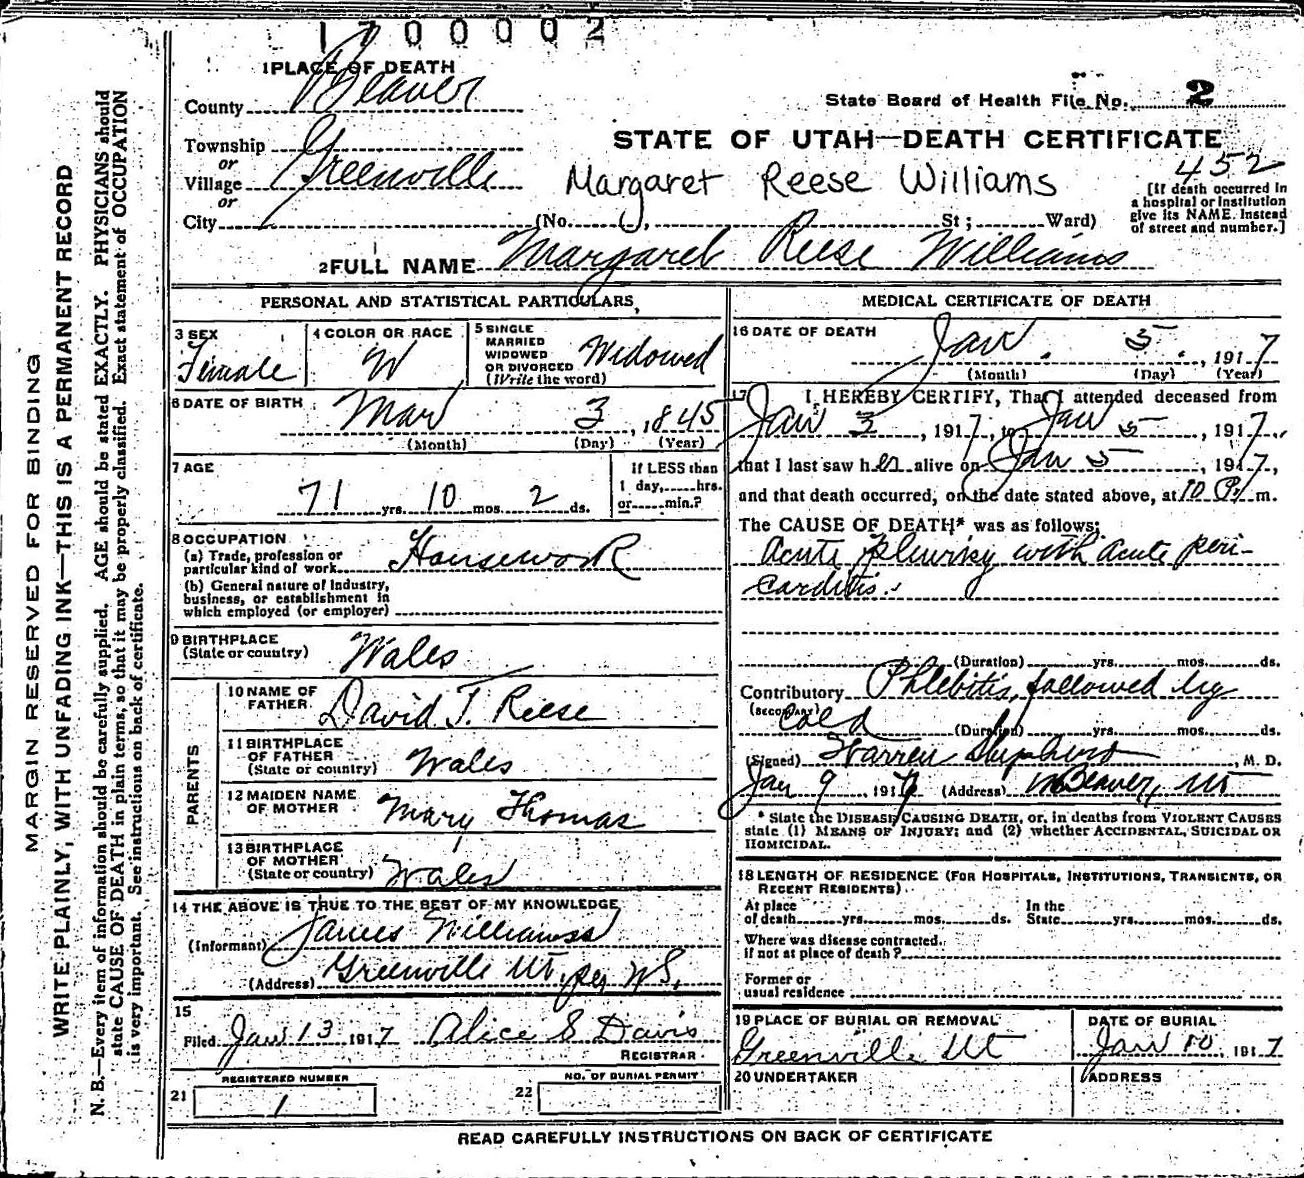 1700002
1 PLACE OF DEATH
County Beaver
State Board of Health File No. 2
STATE OF UTAH—DEATH CERTIFICATE
Township
or
Village Greenville
or
City
452
Margaret Reese Williams
[If death occurred in
a hospital or institution
give its NAME. Instead
of street and number.]
(No. , St; Ward)
2 FULL NAME Margaret Reese Williams
PERSONAL AND STATISTICAL PARTICULARS
3 SEX
Female
4 COLOR OR RACE
W
5 SINGLE
MARRIED
WIDOWED
OR DIVORCED
(Write the word)
Widowed
6 DATE OF BIRTH
Mar 3, 1845
(Month) (Day) (Year)
7 AGE
71 yrs. 10 mos. 2 ds.
If LESS than
1 day, hrs.
or min.?
8 OCCUPATION
(a) Trade, profession or
particular kind of work Housework
(b) General nature of Industry,
business, or establishment in
which employed (or employer)
9 BIRTHPLACE
(State or country) Wales
PARENTS
10 NAME OF
FATHER David T. Reese
11 BIRTHPLACE
OF FATHER
(State or country) Wales
12 MAIDEN NAME
OF MOTHER Mary Thomas
13 BIRTHPLACE
OF MOTHER
(State or country) Wales
14 THE ABOVE IS TRUE TO THE BEST OF MY KNOWLEDGE
(Informant) James Williams
(Address) Greenville Ut, per W S.
15
Filed Jan 13 1917 Alice S Davis
REGISTRAR
REGISTERED NUMBER
21 1
NO. OF BURIAL PERMIT
22
MEDICAL CERTIFICATE OF DEATH
16 DATE OF DEATH
Jan. 5, 1917
(Month) (Day) (Year)
17 I HEREBY CERTIFY, That I attended deceased from
Jan 3, 1917, to Jan 5, 1917,
that I last saw her alive on Jan 5, 1917,
and that death occurred, on the date stated above, at 10 P. m.
The CAUSE OF DEATH* was as follows:
Acute pleurisy with acute peri-
carditis.
(Duration) yrs. mos. ds.
Contributory Phlebitis, followed by
(SECONDARY) cold
(Duration) yrs. mos. ds.
(Signed) Warren Shepherd, M. D.
Jan 9, 1917 (Address) Beaver, Ut
* State the DISEASE CAUSING DEATH, or, in deaths from VIOLENT CAUSES
state (1) MEANS OF INJURY; and (2) whether ACCIDENTAL, SUICIDAL OR
HOMICIDAL.
18 LENGTH OF RESIDENCE (FOR HOSPITALS, INSTITUTIONS, TRANSIENTS, OR
RECENT RESIDENTS)
At place
of death yrs. mos. ds.
In the
State yrs. mos. ds.
Where was disease contracted,
if not at place of death?
Former or
usual residence
19 PLACE OF BURIAL OR REMOVAL
Greenville Ut
DATE OF BURIAL
Jan 10, 1917
20 UNDERTAKER
ADDRESS
READ CAREFULLY INSTRUCTIONS ON BACK OF CERTIFICATE
MARGIN RESERVED FOR BINDING
WRITE PLAINLY, WITH UNFADING INK—THIS IS A PERMANENT RECORD
N. B.—Every item of information should be carefully supplied. AGE should be stated EXACTLY. PHYSICIANS should
state CAUSE OF DEATH in plain terms, so that it may be properly classified. Exact statement of OCCUPATION
is very important. See instructions on back of certificate.